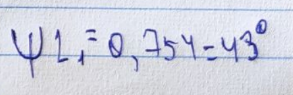 ψL₁=0,754=43⁰